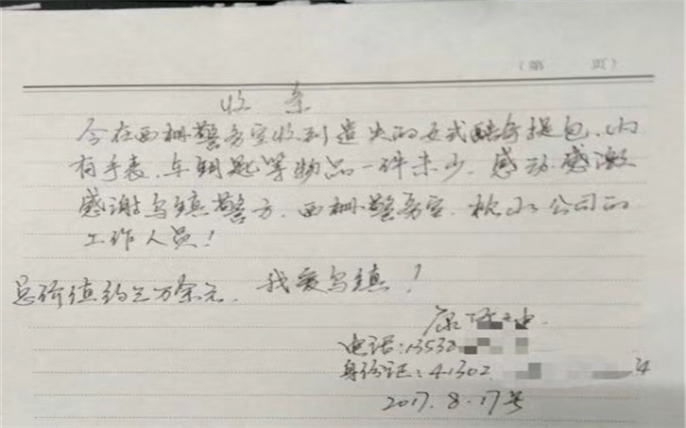 （第　　页）
收条
今在西栅警务室收到遗失的女式酷奇提包、内
有手表、车钥匙等物品一件未少。感动感激
感谢乌镇警方、西栅警务室、枕水公司的
工作人员！
总价值约三万余元。我爱乌镇！
康
电话:13532
身份证:41302
2017.8.17号